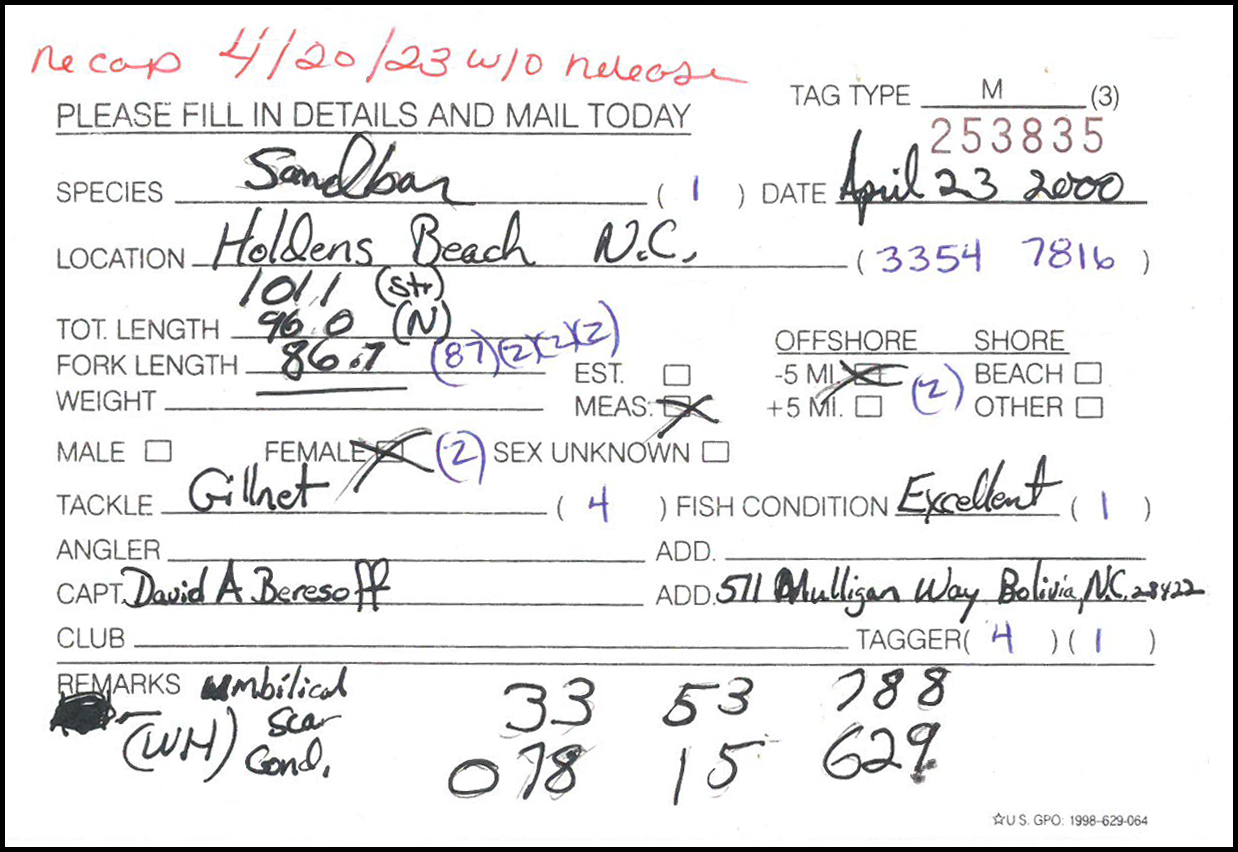 recap 4/20/23 w/o release
TAG TYPE M (3)
PLEASE FILL IN DETAILS AND MAIL TODAY
253835
SPECIES Sandbar ( 1 ) DATE April 23 2000
LOCATION Holdens Beach N.C. ( 3354 7816 )
101.1 (Str)
TOT. LENGTH 96.0 (N)
OFFSHORE SHORE
FORK LENGTH 86.7 (87)(2)(2)(2)
EST. -5 MI. (2) BEACH
WEIGHT MEAS. +5 MI. OTHER
MALE FEMALE (2) SEX UNKNOWN
TACKLE Gillnet ( 4 ) FISH CONDITION Excellent ( 1 )
ANGLER ADD.
CAPT. David A. Beresoff ADD. 511 Mulligan Way Bolivia, N.C. 28422
CLUB TAGGER( 4 ) ( 1 )
REMARKS umbilical 33 53 788
(WH) scar
Cond. 078 15 629
☆U.S. GPO: 1998-629-064